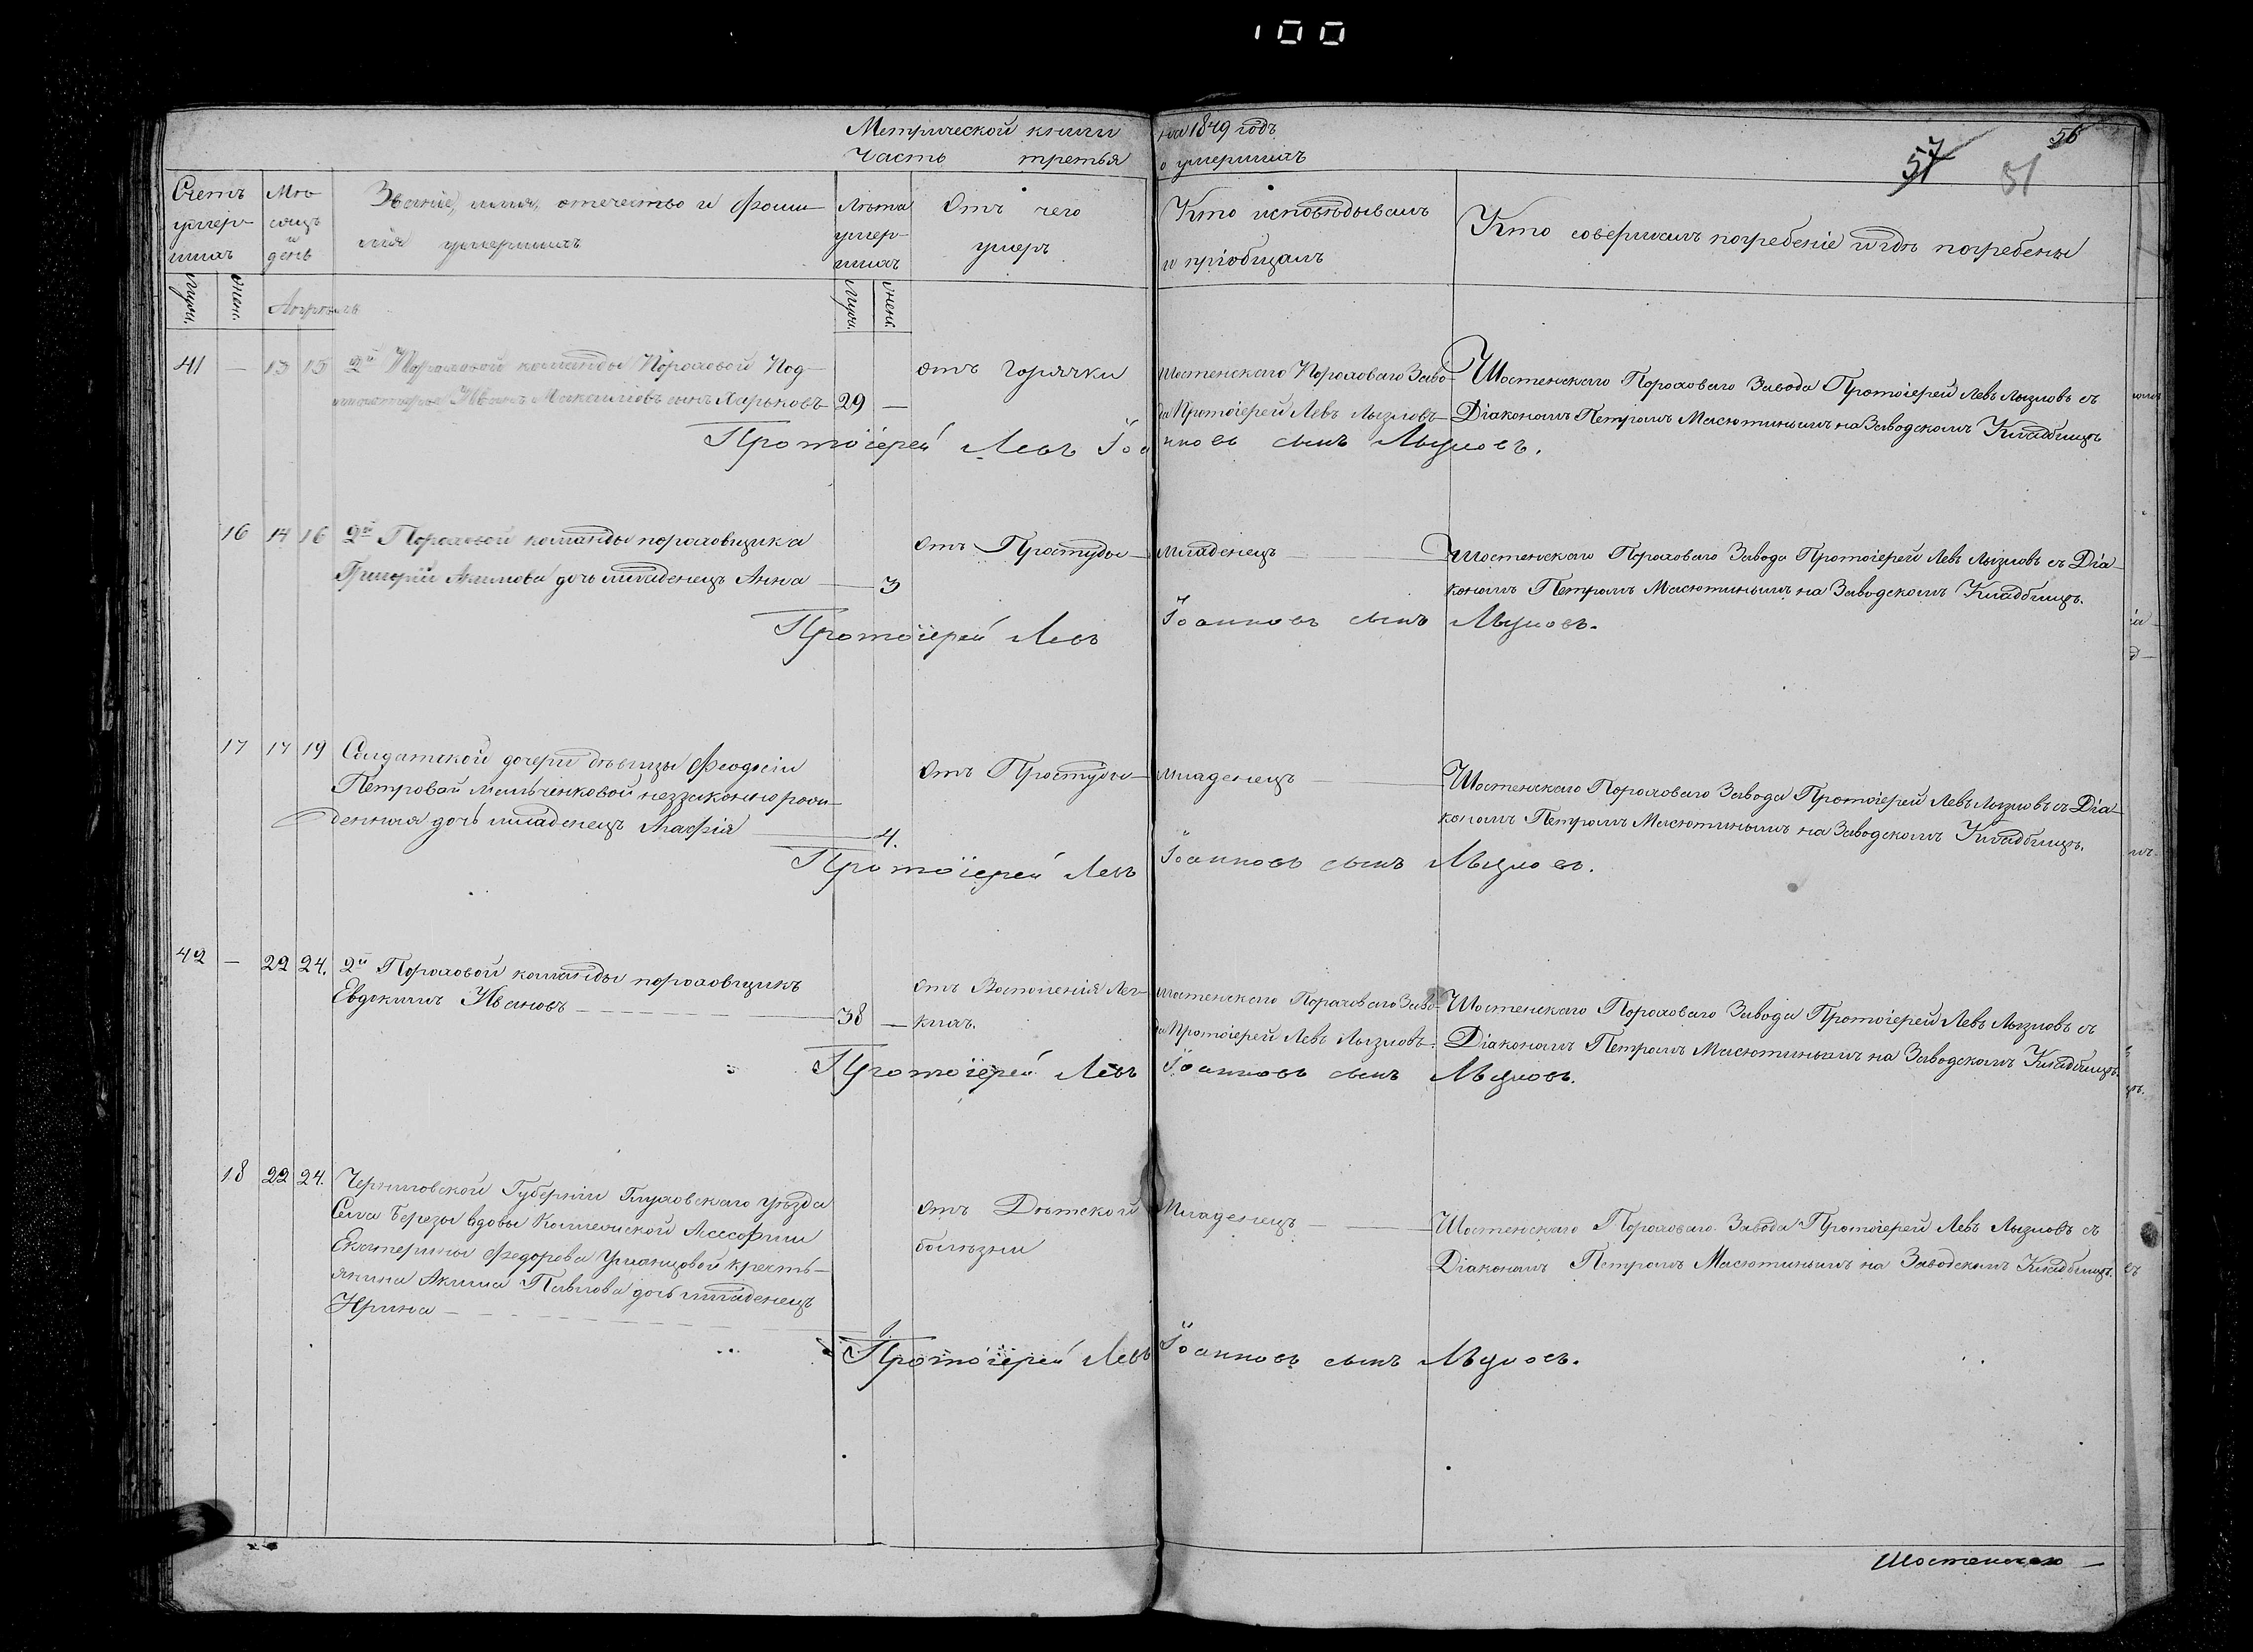 100
Метрической книги на 1849 годъ
Часть третья о умершихъ
56
57
51
Счетъ умер-шихъ
Мѣ-сяцъ и день
Званіе, имя, отечество и фами-
лія умершихъ
Лѣта умер-шихъ
Отъ чего
умеръ
Кто исповѣдывалъ
и пріобщалъ
Кто совершалъ погребеніе и гдѣ погребены
Муж. Жен. Апрѣль Муж. Жен.
41 — 13 15 2й Пороховой команды Пороховой Под-
мастерье Иванъ Михайловъ сынъ Харьковъ 29 —
отъ горячки
Шостенскаго Пороховаго Заво-
да Протоіерей Левъ Лызловъ
Шостенскаго Пороховаго Завода Протоіерей Левъ Лызловъ съ
Діакономъ Петромъ Масютинымъ на Заводскомъ Кладбищѣ
Протоіерей Левъ Іоанновъ сынъ Лызловъ.
16 14 16 2й Пороховой команды пороховщика
Григорія Акимова дочь младенецъ Анна — 3
отъ Простуды
Младенецъ
Шостенскаго Пороховаго Завода Протоіерей Левъ Лызловъ съ Діа-
кономъ Петромъ Масютинымъ на Заводскомъ Кладбищѣ.
Протоіерей Левъ Іоанновъ сынъ Лызловъ.
17 17 19 Солдатской дочери дѣвицы Феодосіи
Петровой Мельченковой незаконнорож-
денная дочь младенецъ Марфія — 4.
отъ Простуды
Младенецъ
Шостенскаго Пороховаго Завода Протоіерей Левъ Лызловъ съ Діа-
кономъ Петромъ Масютинымъ на Заводскомъ Кладбищѣ.
Протоіерей Левъ Іоанновъ сынъ Лызловъ.
42 — 22 24. 2й Пороховой команды пороховщикъ
Евдокимъ Ивановъ 38 —
отъ Воспаленія Лег-
кихъ.
Шостенскаго Пороховаго Заво-
да Протоіерей Левъ Лызловъ
Шостенскаго Пороховаго Завода Протоіерей Левъ Лызловъ съ
Діакономъ Петромъ Масютинымъ на Заводскомъ Кладбищѣ.
Протоіерей Левъ Іоанновъ сынъ Лызловъ.
18 22 24. Черниговской Губерніи Глуховскаго уѣзда
Села Березы вдовы Коллежской Асесорши
Екатерины Федорова Уманцовой кресть-
янина Акима Павлова дочь младенецъ
Ирина
отъ Дѣтской
болѣзни
Младенецъ
Шостенскаго Пороховаго Завода Протоіерей Левъ Лызловъ съ
Діакономъ Петромъ Масютинымъ на Заводскомъ Кладбищѣ.
Протоіерей Левъ Іоанновъ сынъ Лызловъ.
Шостенскаго